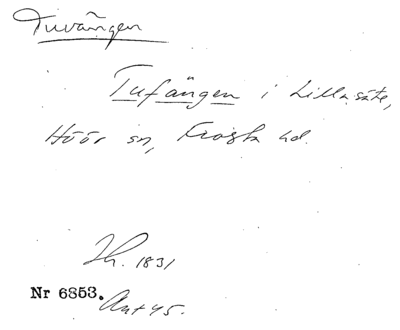 Tuvängen
Tufängen i Lillasäte,
Höör sn, Frosta hd.
Ih. 1831
Nr 6853. Ant 45.